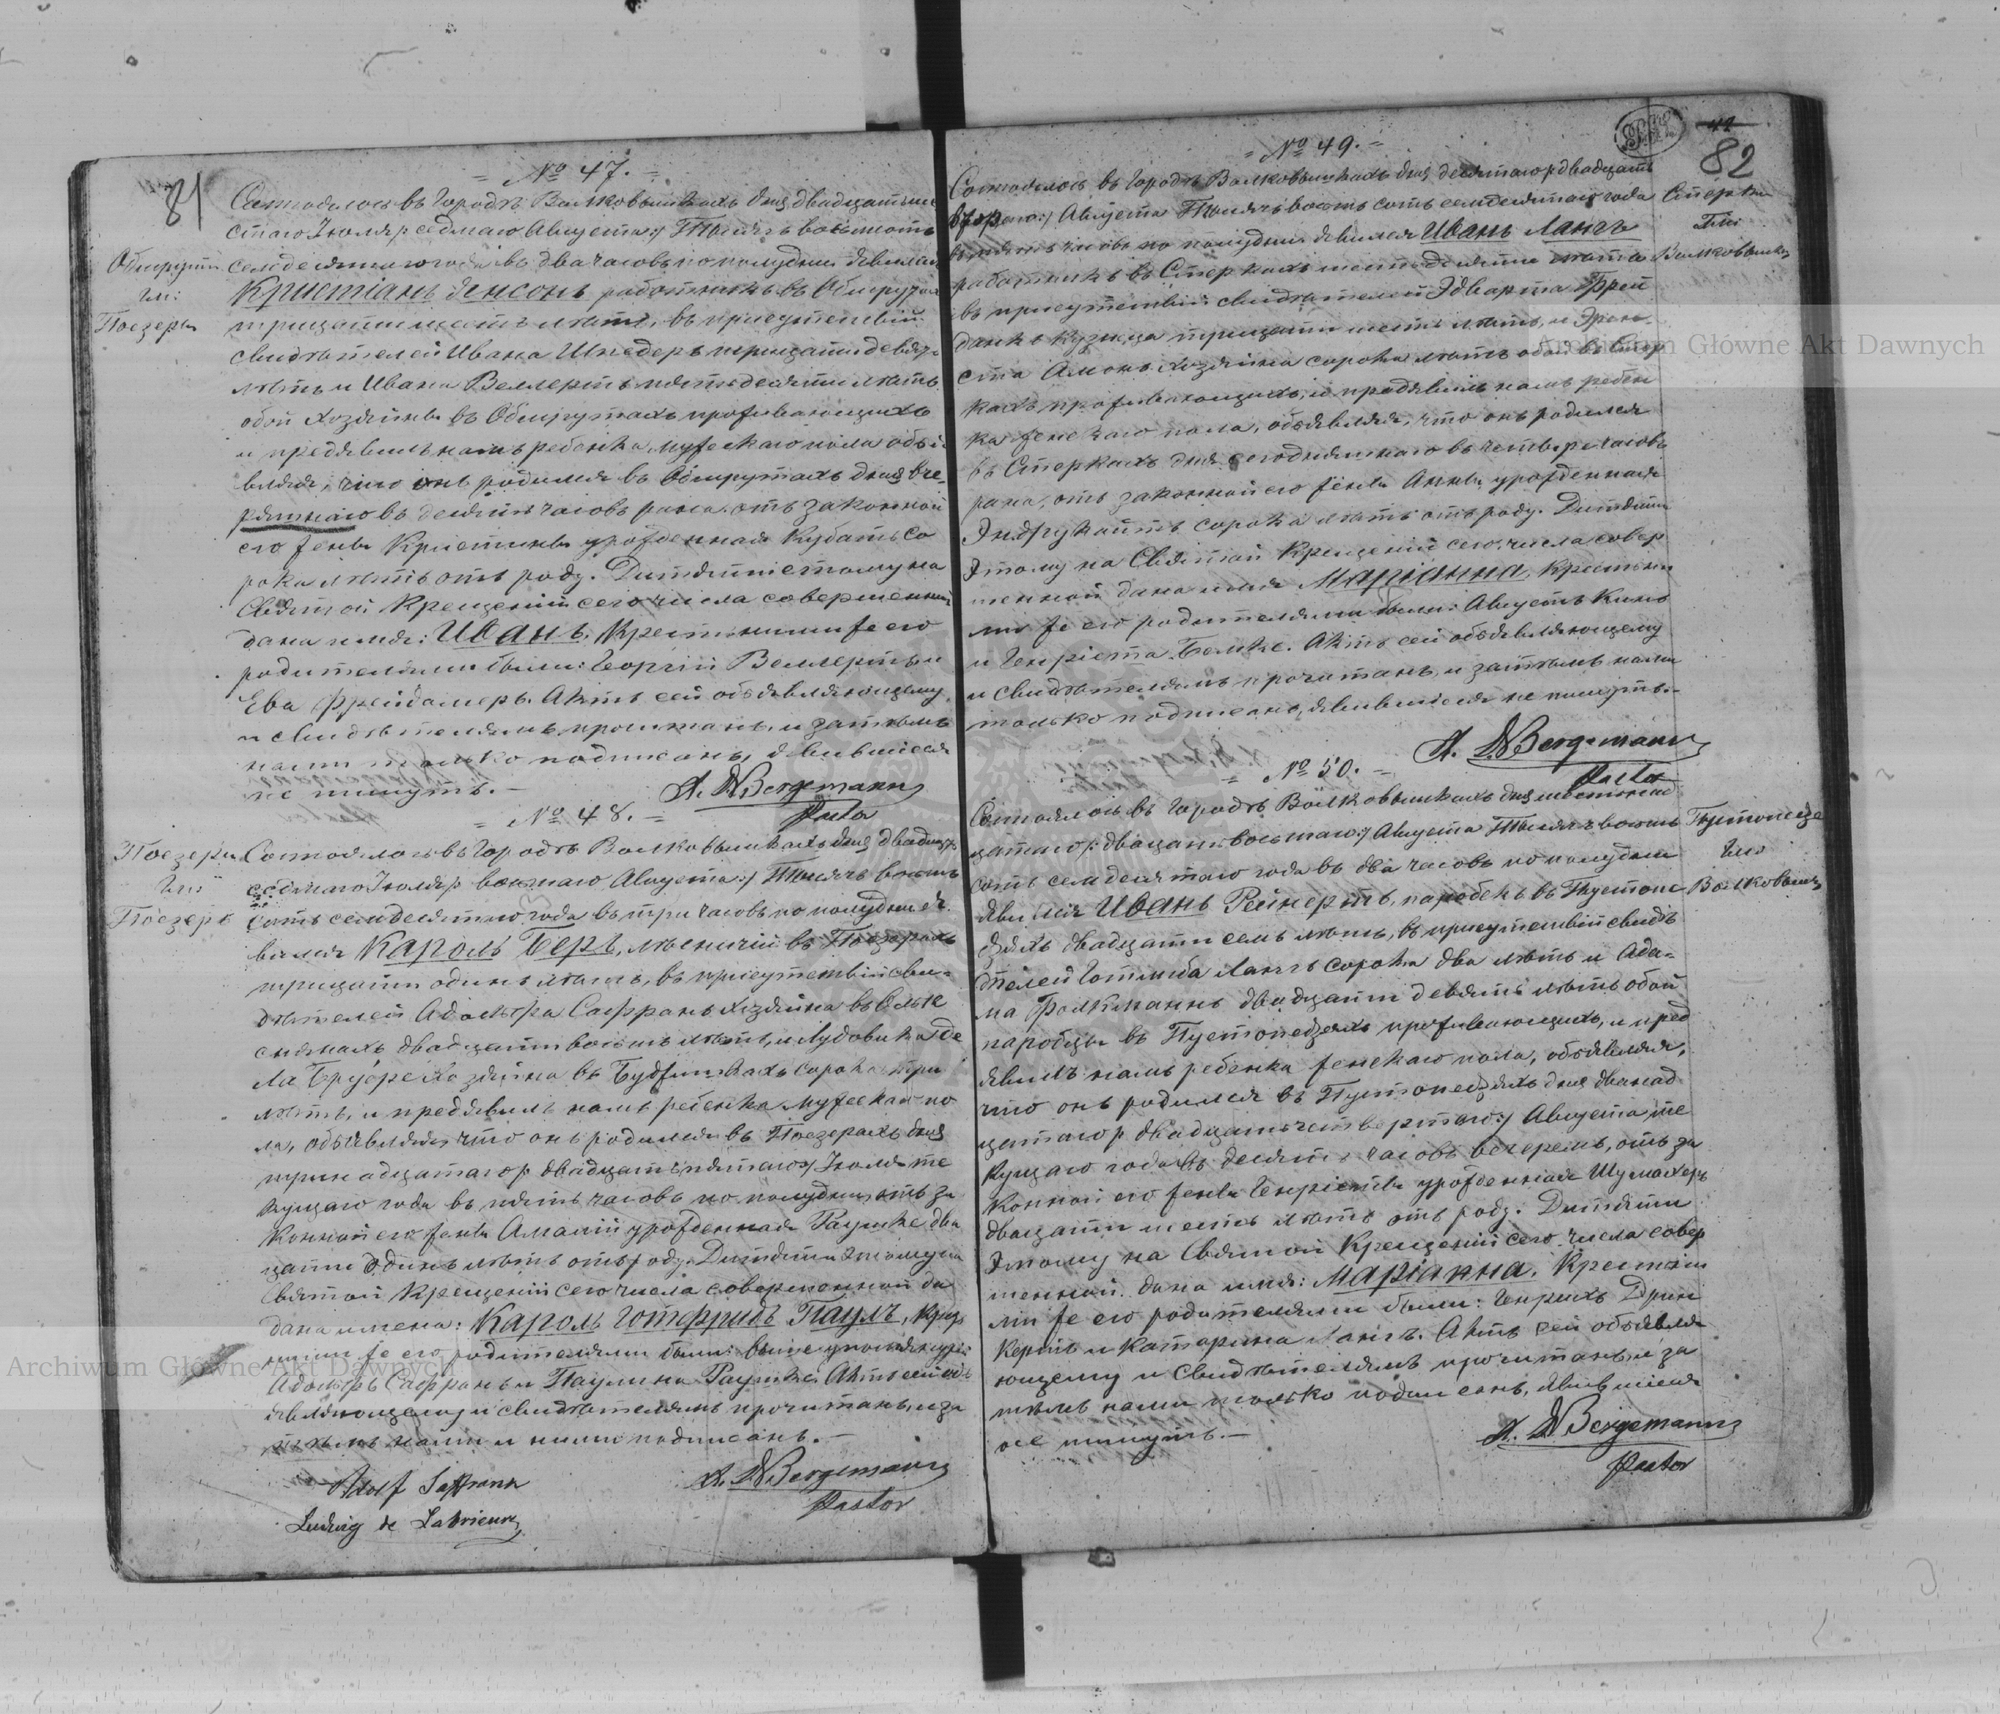 81
= № 47. =
Состоялось въ Городѣ Волковышкахъ дня двадцать ше
стаго Іюля /: седмаго Августа :/ Тысяча восемьсотъ
Обшрутги семдесятаго года въ два часовъ по полудни явился
Гми: Кристіанъ Енсонъ работникъ въ Обшрутахъ
Поезеры тридцати шесть лѣтъ, въ присутствіи
свидѣтелей Ивана Шнедеръ тридцати девять
лѣтъ и Ивана Веллертъ пятьдесяти лѣтъ
обои хозяины въ Обшрутахъ проживающихъ
и предявилъ намъ ребенка мужескаго пола объя
вляя, что онъ родился въ Обшрутахъ дня вче
ряшнаго въ десять часовъ рана отъ законной
его жены Кристины урожденная Кубатъ со
рока лѣтъ отъ роду. Дитяти этому на
Святой Крещеніи сего числа совершенный
дана имя: Иванъ, Крестными же его
родителями были: Георгій Веллертъ и
Ева Фрейдамеръ. Актъ сей объявляющему
и свидѣтелямъ прочитанъ, и затѣмъ
нами только подписанъ, явившіеся
не пишутъ. –
A. W Bergemann
Pastor
= № 48. =
Поезеры Состоялось въ Городѣ Волковышкахъ дня двадцать
Гми седмаго Іюля /: восмаго Августа :/ Тысяча восемь
Поезеры сотъ семдесятаго года въ три часовъ по полудни я
вился Кароль Беръ, лѣсничій въ Поезерахъ
тридцати одинъ лѣтъ, въ присутствіи сви
дѣтелей Адольфа Сафранъ хозяина въ
двадцати восемь лѣтъ, и Лудовика де
ла Бруере хозяина въ сорока три
лѣтъ, и предявилъ намъ ребенка мужескаго по
ла, объявляя что онъ родился въ Поезерахъ дня
тринадцатаго /: двадцать пятаго :/ Іюля те
кущаго года въ пять часовъ по полудни отъ за
конной его жены Амаліи урожденная Раушке два
цати одинъ лѣтъ отъ роду. Дитяти этому на
Святой Крещеніи сего числа совершенной да
дана имена: Кароль Готфридъ Паулъ, Крест
ными же его родителями были: вышеупомянутый
Адольфъ Сафранъ и Паулина Раушке. Актъ сей объ
являющему и свидѣтелямъ прочитанъ, и за
тѣмъ нами и ними подписанъ. –
Adolf Saffrann
A. W Bergemann
Pastor
Ludwig de Labrieure
82
= № 49. =
Состоялось въ Городѣ Волковышкахъ дня десятаго /: двадцать
втораго :/ Августа Тысяча восемь сотъ семдесятаго года Стерки
въ пять часовъ по полудни явился Иванъ Лангъ Гми:
работникъ въ Стеркахъ шестьдесяти лѣтъ Волковышки
въ присутствіи свидѣтелей Эдварта Брей
данкъ кузнеца тридцати шесть лѣтъ, и Эрне
ста Амонъ хозяина сорока лѣтъ обои въ Стер
кахъ проживающихъ, и предявилъ намъ ребен
ка женскаго пола, объявляя, что онъ родился
въ Стеркахъ дня сегодняшнаго въ четыре часовъ
рана, отъ законной его жены Анны урожденная
Эндрукайтъ сорока лѣтъ отъ роду. Дитяти
этому на Святой Крещеніи сего числа совер
шенной дана имя Маріанна, Крестны
ми же его родителями были: Августъ Кинъ
и Генріета Бемке. Актъ сей объявляющему
и свидѣтелямъ прочитанъ, и затѣмъ нами
только подписанъ, явившіеся не пишутъ. –
A. W Bergemann
Pastor
= № 50. =
Состоялось въ Городѣ Волковышкахъ дня шестнад
цатаго /: двацать восьмаго :/ Августа Тысяча восемь Пустопедзе
сотъ семдесятаго года въ два часовъ по полудни Гми
явился Иванъ Рейнертъ, паробекъ въ Пустопе Волковышки
дзяхъ двадцати семь лѣтъ, въ присутствіи свидѣ
телей Готлиба Лангъ сорока два лѣтъ и Ада
ма Фолкманнъ двадцати девять лѣтъ обои
паробцы въ Пустопедзяхъ проживающихъ, и пред
явилъ намъ ребенка женскаго пола, объявляя,
что онъ родился въ Пустопедзяхъ дня дванад
цатаго /: двадцать четвертаго :/ Августа те
кущаго года въ десять часовъ вечеромъ, отъ за
конной его жены Генріеты урожденная Шумахеръ
двацати шесть лѣтъ отъ роду. Дитяти
этому на Святой Крещеніи сего числа совер
шенной дана имя: Маріанна. Крестны
ми же его родителями были: Генрихъ Дрин
кертъ и Катарина Лангъ. Актъ сей объявля
ющему и свидѣтелямъ прочитанъ, и за
тѣмъ нами только подписанъ, явившіеся
не пишутъ. –
A. W Bergemann
Pastor
Archiwum Główne Akt Dawnych
Archiwum Główne Akt Dawnych